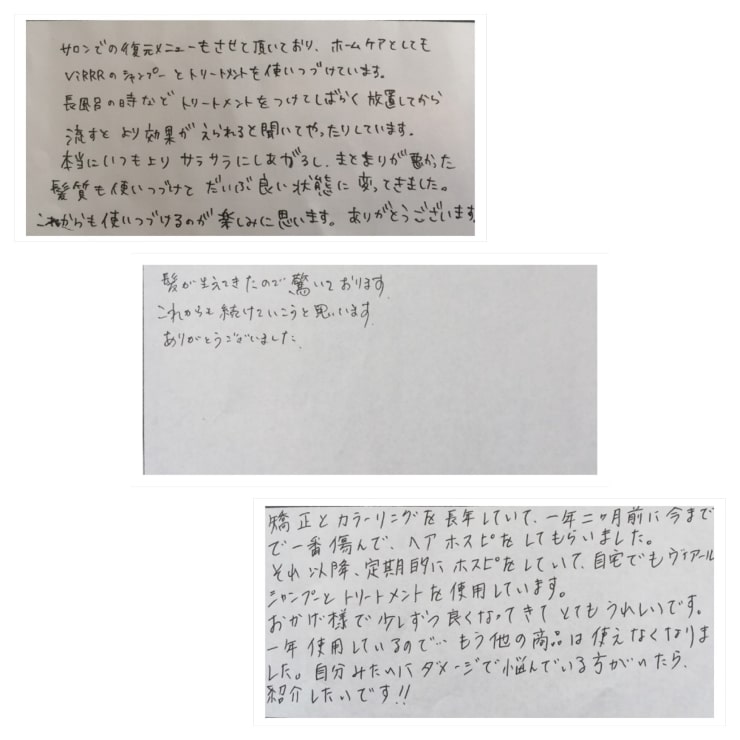 サロンでの復元メニューもさせて頂いており、ホームケアとしても
ViRRRのシャンプーとトリートメントを使いつづけています。
長風呂の時など トリートメントをつけてしばらく放置してから
流すと より効果がえられると聞いてやったりしています。
本当にいつもより サラサラにしあがるし、まとまりが悪かった
髪質も使いつづけて だいぶ良い状態に変ってきました。
これからも使いつづけるのが楽しみに思います。ありがとうございます
髪が生えてきたので驚いております
これからも続けていこうと思います
ありがとうございました。
矯正とカラーリングを長年していて、一年二ヶ月前に今まで
で一番傷んで、ヘアホスピをしてもらいました。
それ以降、定期的にホスピをしていて、自宅でもヴィアール
シャンプーとトリートメントを使用しています。
おかげ様で少しずつ良くなってきてとてもうれしいです。
一年使用しているので…もう他の商品は使えなくなりま
した。自分みたいにダメージで悩んでいる方がいたら、
紹介したいです!!